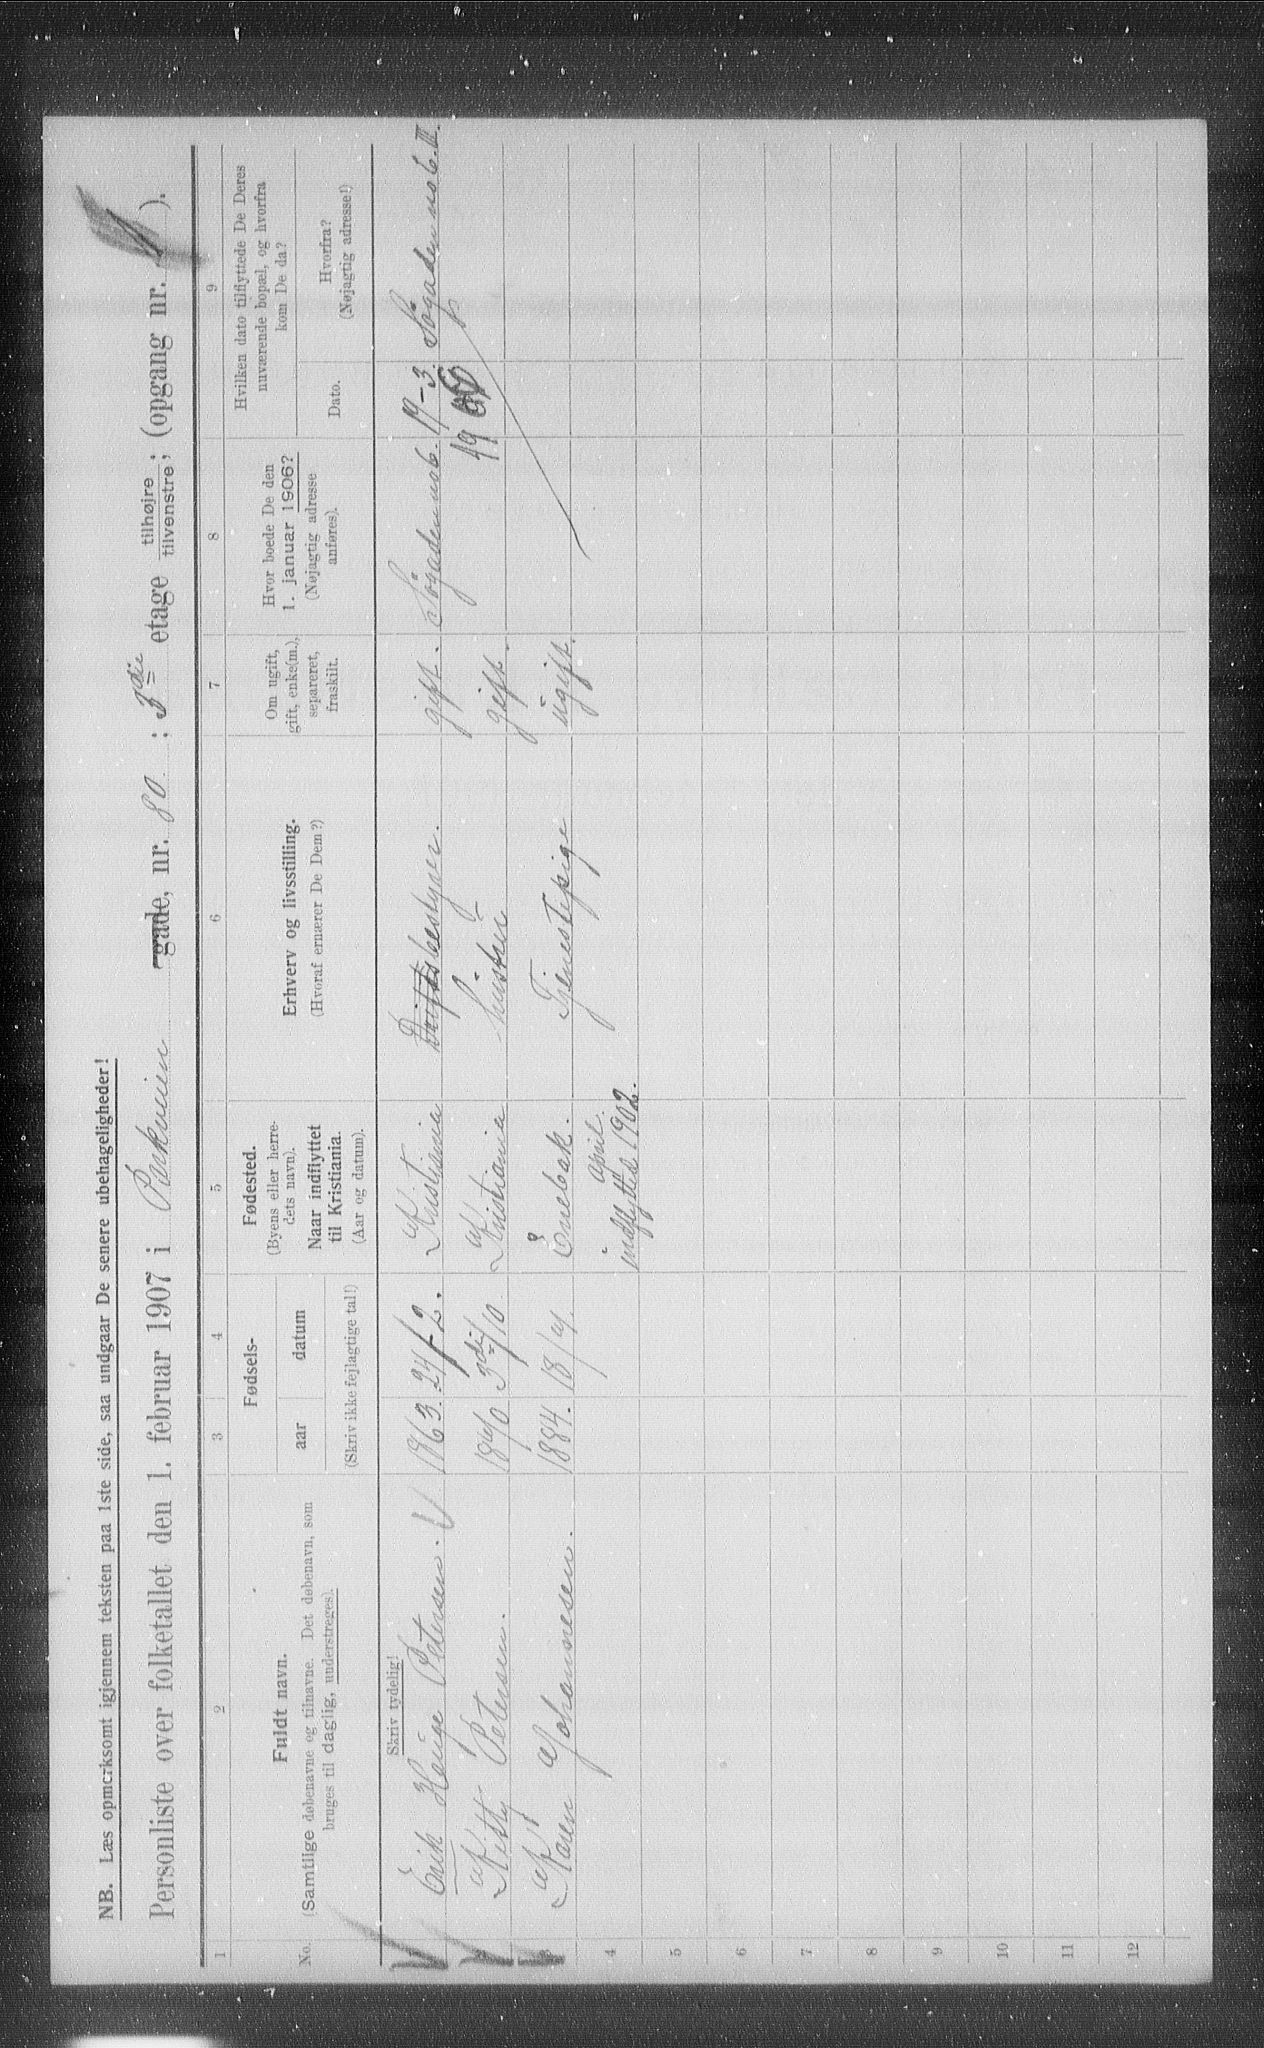 NB. Læs opmerksomt igjennem teksten paa 1ste side, saa undgaar De senere ubehageligheder!
Personliste over folketallet den 1. februar 1907 i Parkveien gade, nr. 80 ; 3die etage tilhøjre ; tilvenstre ; (opgang nr. 1 ).
1 2 3 4 5 6 7 8 9
No.
Fuldt navn.
(Samtlige døbenavne og tilnavne. Det døbenavn, som
bruges til daglig, understreges).
Fødsels-
aar datum
(Skriv ikke fejlagtige tal!)
Fødested.
(Byens eller herre-
dets navn).
Naar indflyttet
til Kristiania.
(Aar og datum).
Erhverv og livsstilling.
(Hvoraf ernærer De Dem?)
Om ugift,
gift, enke(m.),
separeret,
fraskilt.
Hvor boede De den
1. januar 1906?
(Nøjagtig adresse
anføres).
Hvilken dato tilflyttede De Deres
nuværende bopæl, og hvorfra
kom De da?
Dato.
Hvorfra?
(Nøjagtig adresse!)
Skriv tydelig!
1 Erik Hauge Petersen. 1863. 24/-2. Kristiania Driftsbestyrer. gift. Søgaden no 6. 19-3. Søgaden no 6. III.
2 Kitty Petersen. 3die/10. Kristiania hustru gift. 19
3 Karen Johannesen. 1884. 18/4. Enebak. Tjenestepige ugift.
4 indflyttet april 1902.
5
6
7
8
9
10
11
12